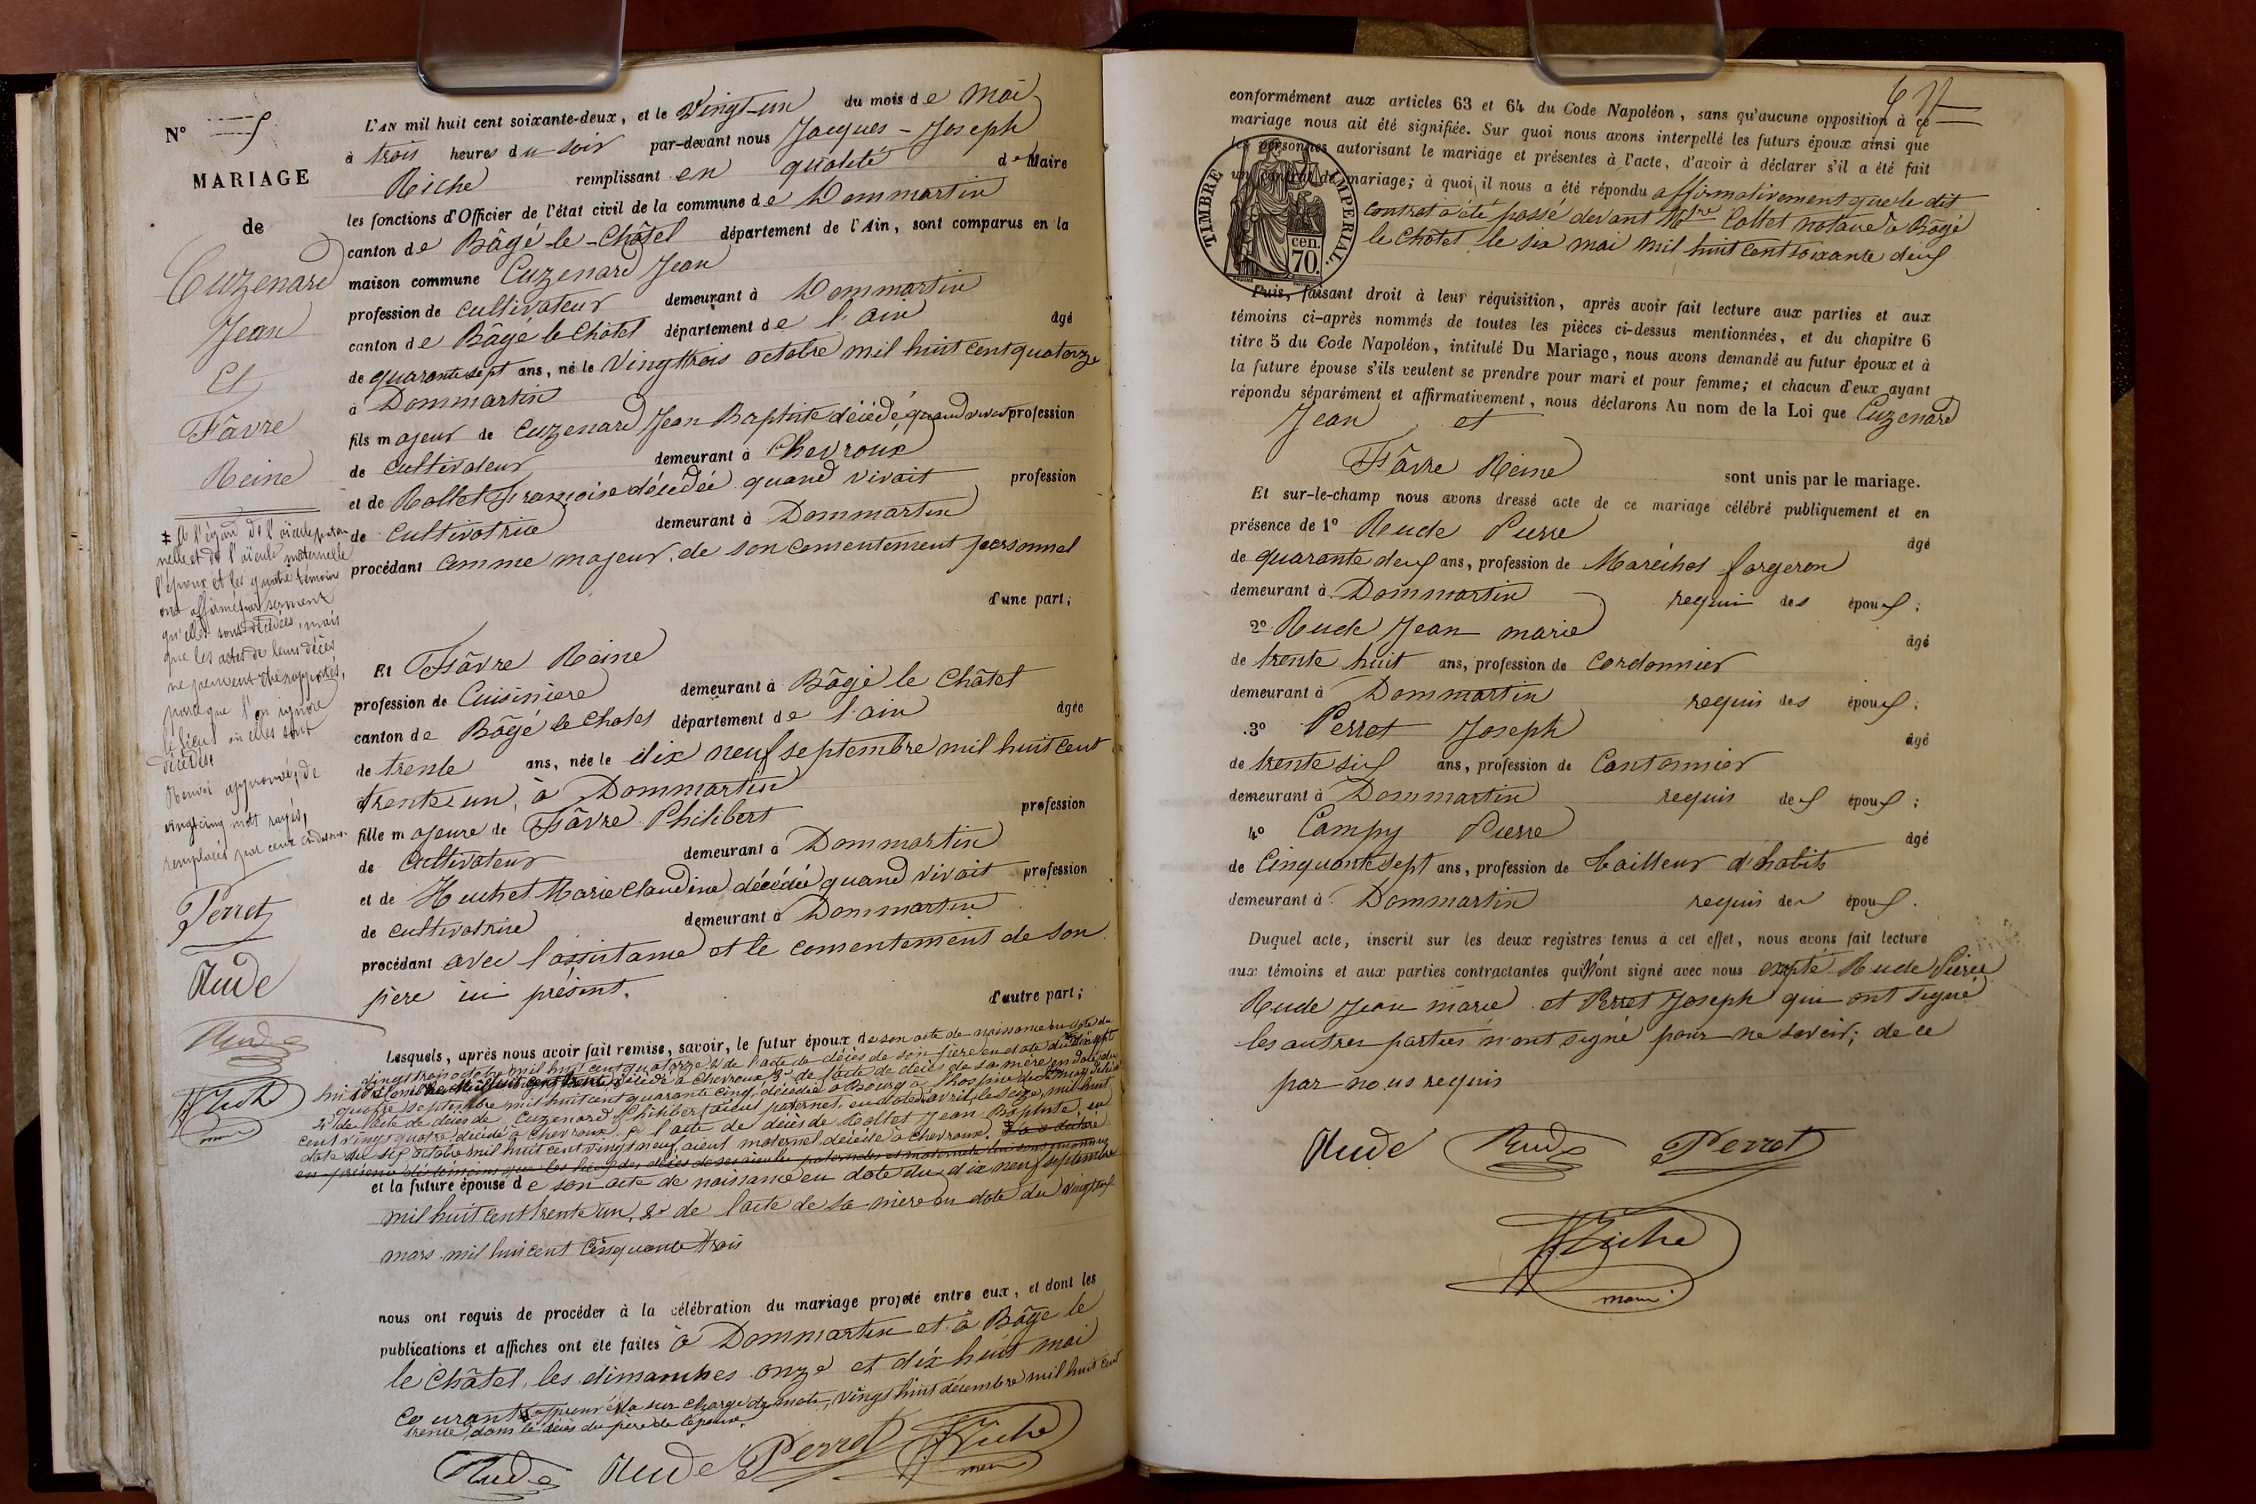 N° 5
MARIAGE
de
Cuzenard
Jean
Et
Fâvre
Reine
‡ A l'égard de l'aïeule pater
nelle et de l'aïeule maternelle
l'époux et les quatre témoins
ont affirmé par serment
qu'elles sont décédées, mais
que les actes de leurs décès
ne peuvent être rapportés,
parce que l'on ignore
le lieu où elles sont
décédées
Renvoi approuvé, de
vingt cinq mots rayés,
remplacés par ceux ci dessus
Perret
Rude
Rude
Riche
maire
L'AN mil huit cent soixante-deux, et le Vingt-un du mois de Mai
à trois heures du soir par-devant nous Jacques-Joseph
Riche remplissant en qualité de Maire
les fonctions d'Officier de l'état civil de la commune de Dommartin
canton de Bâgé-le-Châtel département de l'Ain, sont comparus en la
maison commune Cuzenard Jean
profession de cultivateur demeurant à Dommartin
canton de Bâgé le Châtel département de l'ain âgé
de quarante sept ans, né le Vingt trois octobre mil huit cent quatorze
à Dommartin
fils majeur de Cuzenard Jean Baptiste décédé, quand vivait profession
de cultivateur demeurant à Chevroux
et de Rollet Françoise décédée quand vivait profession
de Cultivatrice demeurant à Dommartin
procédant comme majeur, de son consentement personnel
d'une part;
Et Fâvre Reine
profession de Cuisiniere demeurant à Bâgé le Châtel
canton de Bâgé le Chatel département de l'ain âgée
de trente ans, née le dix neuf septembre mil huit cent
trente un, à Dommartin
fille majeure de Fâvre Philibert profession
de Cultivateur demeurant à Dommartin
et de Huchet Marie Claudine décédée quand vivait profession
de cultivatrice demeurant à Dommartin
procédant avec l'assistance et le consentement de son
père ici présent.
d'autre part;
Lesquels, après nous avoir fait remise, savoir, le futur époux de son acte de naissance en date du
vingt trois octobre mil huit cent quatorze 2° de l'acte de décès de son père en date du
décédé à Chevroux, 3° de l'acte de décès de sa mère en date du
quatre septembre mil huit cent quarante cinq, décédée à Bourg à l'hospice de
4° de l'acte de décès de Cuzenard Philibert aïeul paternel, en date avril, le seize, mil huit
cent vingt quatre décédé à Chevroux, 5° l'acte de décès de Rollet Jean Baptiste, en
date du six octobre mil huit cent vingt neuf, aïeul maternel décédé à Chevroux.
et la future épouse de son acte de naissance en date du dix neuf septembre
mil huit cent trente un, 2° de l'acte de sa mère en date du vingt six
mars mil huit cent Cinquante trois
nous ont requis de procéder à la célébration du mariage projeté entre eux, et dont les
publications et affiches ont été faites à Dommartin et à Bâgé le
le Châtel, les dimanches onze et dix huit mai
courant approuvé la sur charge des mots, Vingt huit décembre mil huit cent
trente, dans le décès du père de l'époux.
Rude Rude Perret Riche
maire
conformément aux articles 63 et 64 du Code Napoléon, sans qu'aucune opposition à ce
mariage nous ait été signifiée. Sur quoi nous avons interpellé les futurs époux ainsi que
les personnes autorisant le mariage et présentes à l'acte, d'avoir à déclarer s'il a été fait
un contrat de mariage; à quoi il nous a été répondu affirmativement que le dit
contrat a été passé devant Mtre Collet notaire à Bâgé
le Châtel le six mai mil huit cent soixante deux
TIMBRE IMPERIAL.
cen.
70.
Puis, faisant droit à leur réquisition, après avoir fait lecture aux parties et aux
témoins ci-après nommés de toutes les pièces ci-dessus mentionnées, et du chapitre 6
titre 5 du Code Napoléon, intitulé Du Mariage, nous avons demandé au futur époux et à
la future épouse s'ils veulent se prendre pour mari et pour femme; et chacun d'eux ayant
répondu séparément et affirmativement, nous déclarons Au nom de la Loi que Cuzenard
Jean et
Fâvre Reine sont unis par le mariage.
Et sur-le-champ nous avons dressé acte de ce mariage célébré publiquement et en
présence de 1° Rude Pierre âgé
de quarante deux ans, profession de Maréchal forgeron
demeurant à Dommartin requis des époux;
2° Rude Jean marie âgé
de trente huit ans, profession de Cordonnier
demeurant à Dommartin requis des époux;
3° Perret Joseph âgé
de trente six ans, profession de Cantonnier
demeurant à Dommartin requis des époux;
4° Campy Pierre âgé
de Cinquante sept ans, profession de tailleur d'habits
demeurant à Dommartin requis des époux.
Duquel acte, inscrit sur les deux registres tenus à cet effet, nous avons fait lecture
aux témoins et aux parties contractantes qui n'ont signé avec nous excepté Rude Pierre
Rude Jean marie et Perret Joseph qui ont signé
les autres parties n'ont signé pour ne savoir; de ce
par nous requis
Rude Rude Perret
Riche
maire.